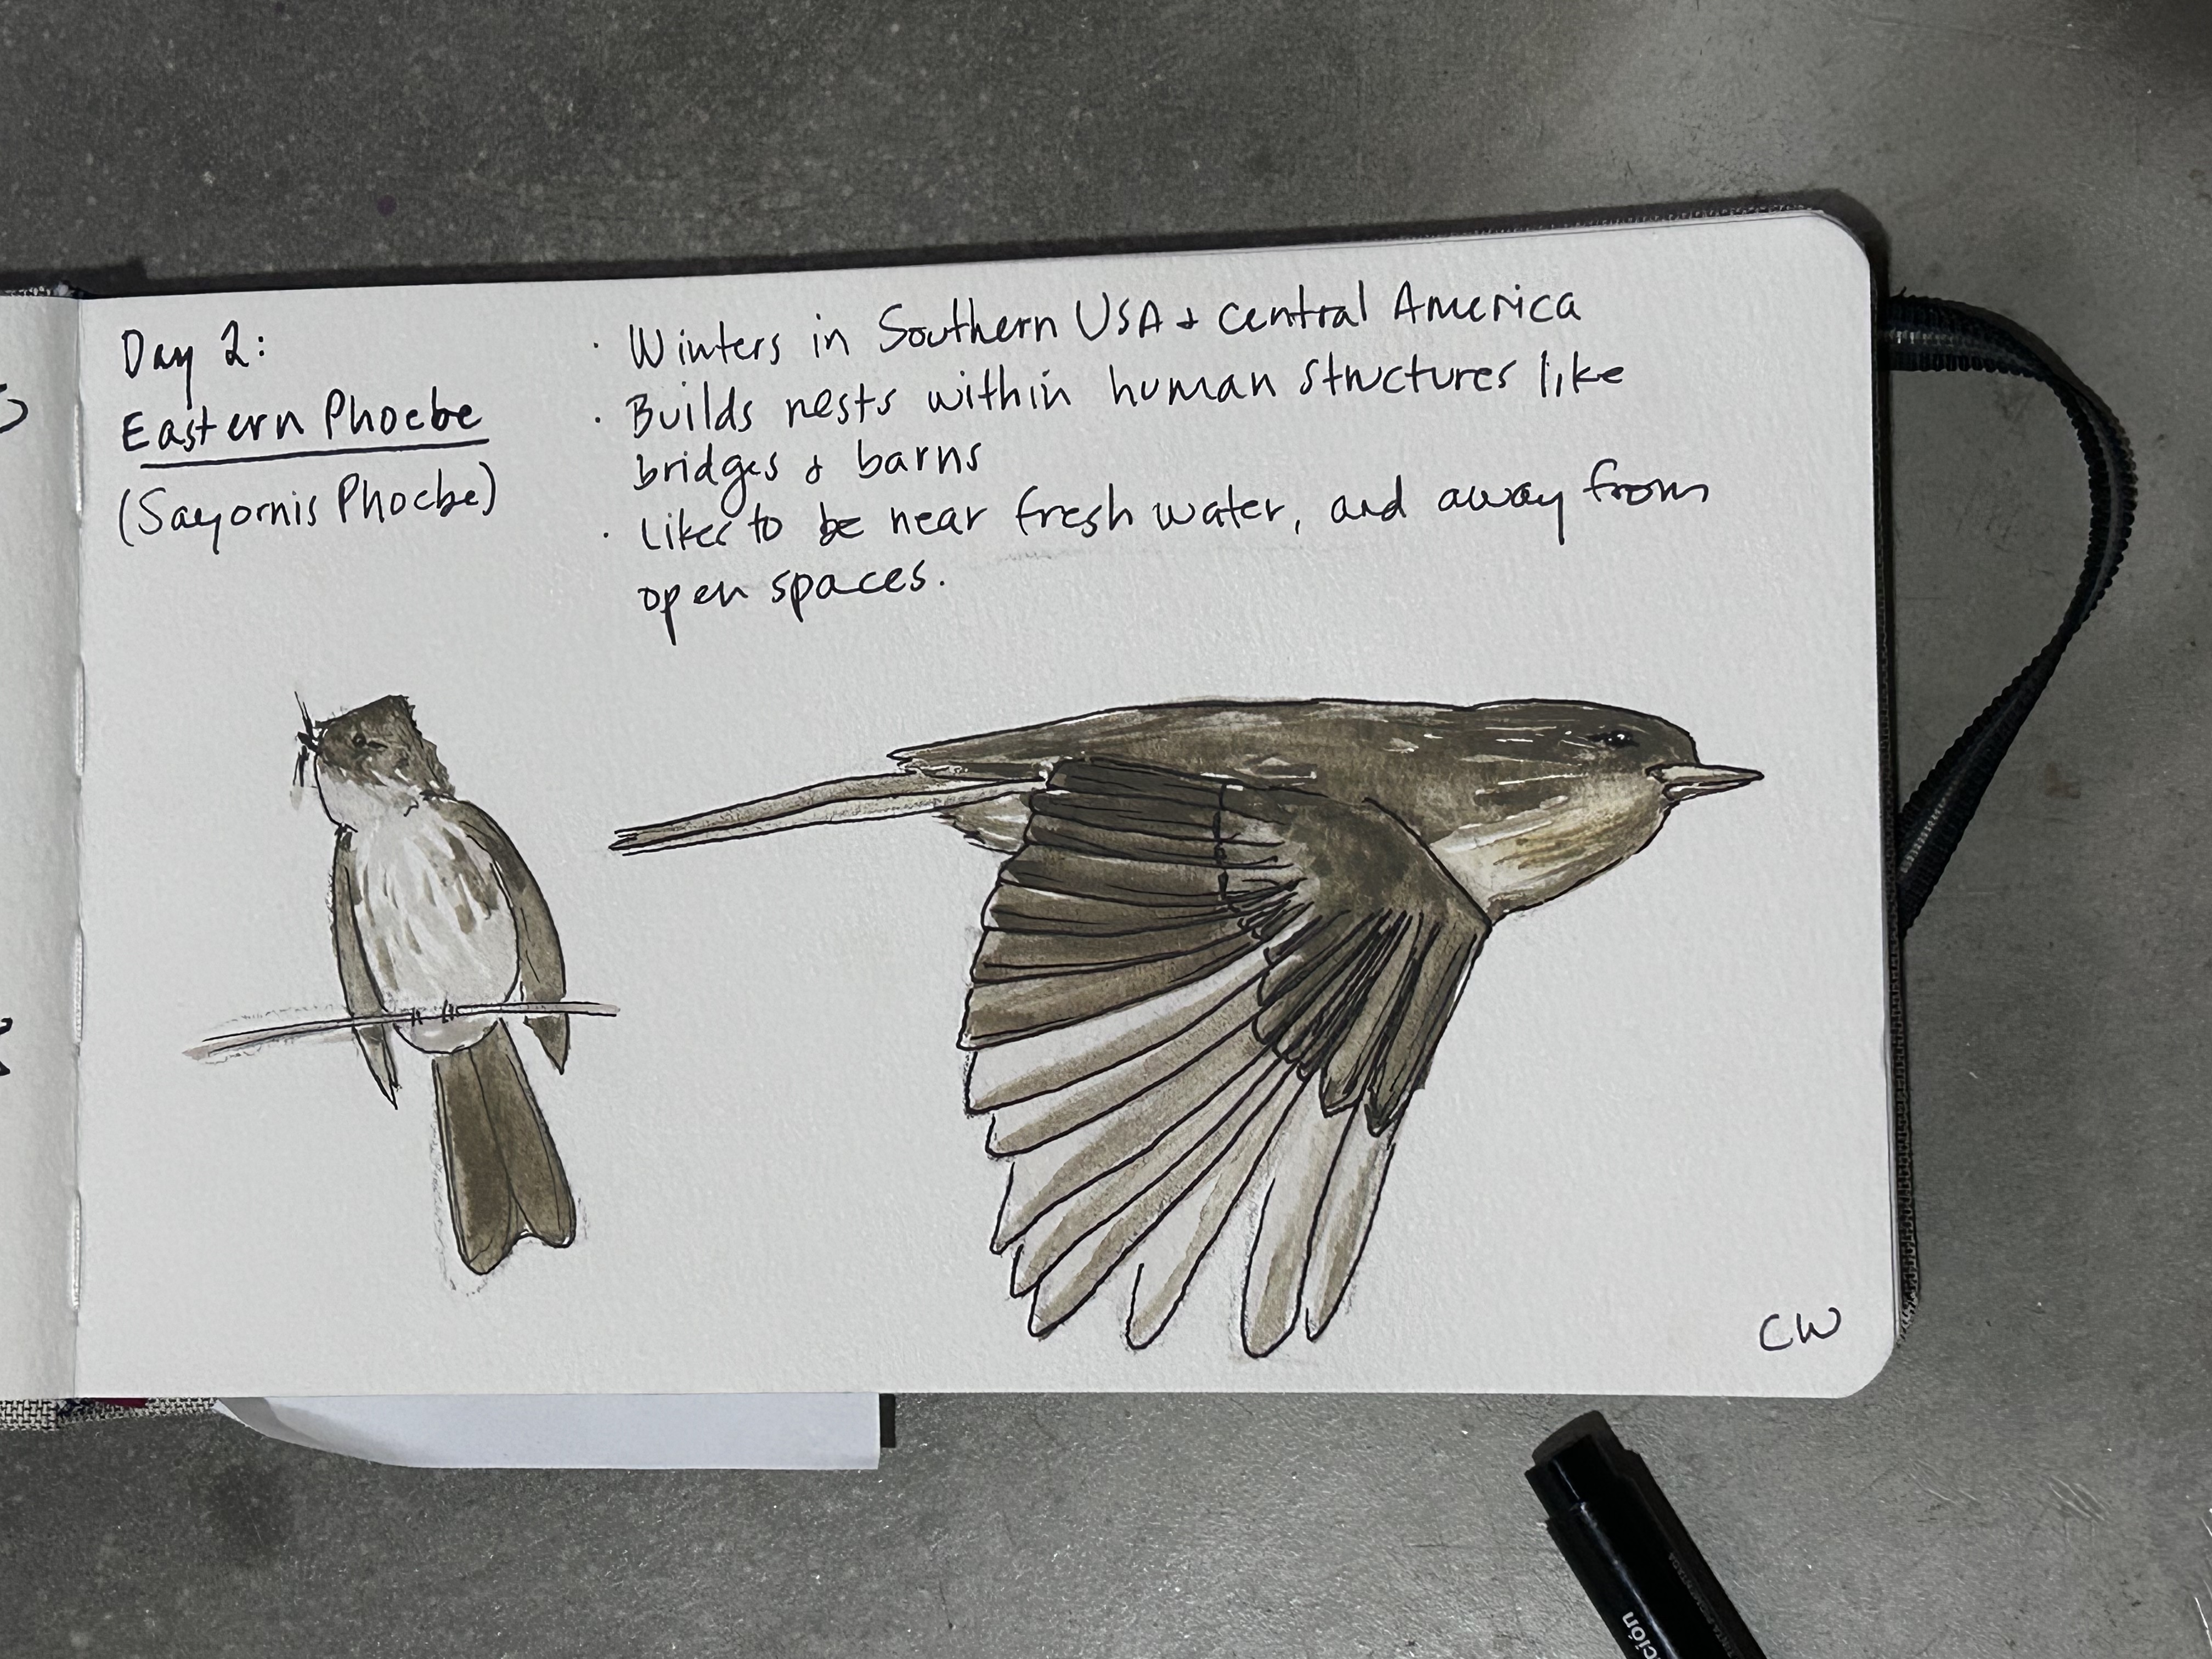 Day 2:
Eastern Phoebe
(Sayornis Phoebe)
· Winters in Southern USA & central America
· Builds nests within human structures like
bridges & barns
· Likes to be near fresh water, and away from
open spaces.
CW
ción